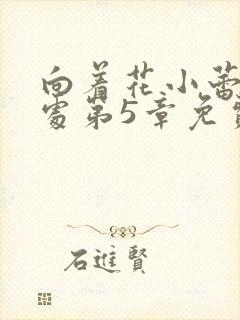 向着花小蕾
处第5章免
石進賢